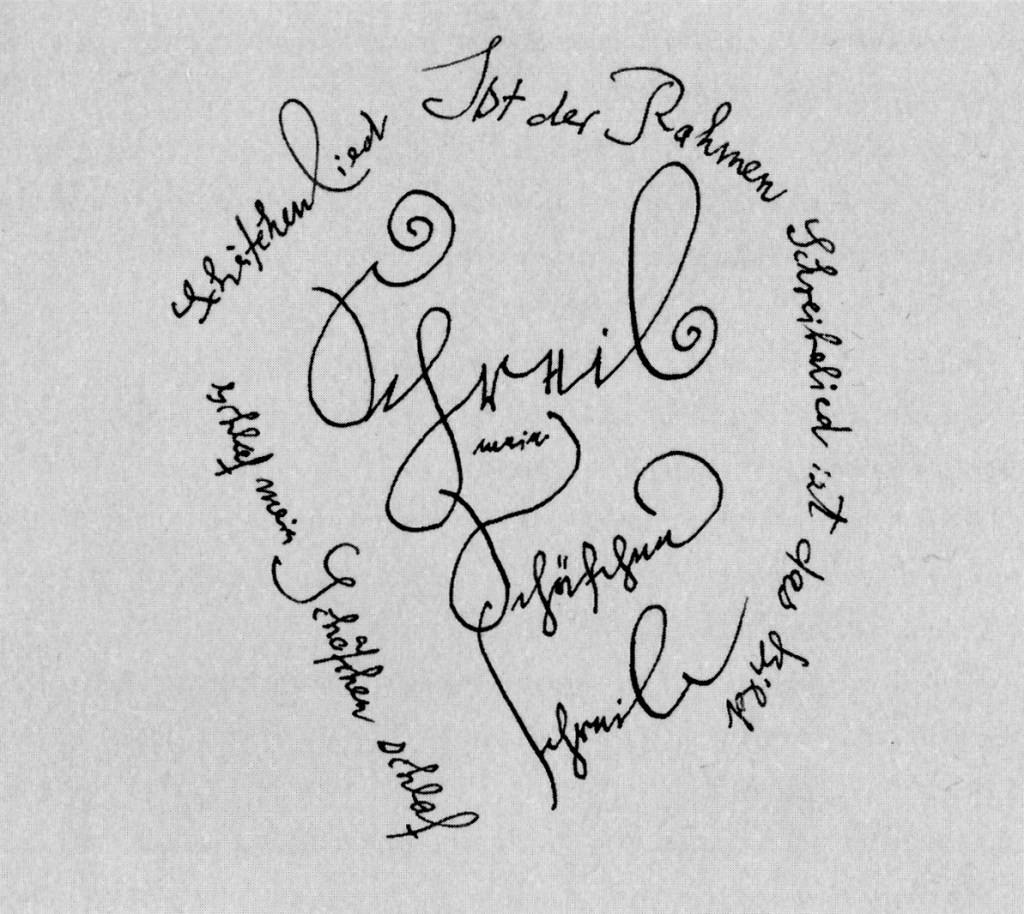 Schäfchenlied
Ist der Rahmen
Schreibelied ist
das Bild
schlaf mein Schäfchen schlaf
Schreib
mein
Schäfchen
schreib